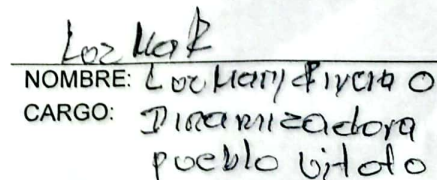 Loz Mar R
NOMBRE: Loz Mary Rivera O
CARGO: Dinamizadora
pueblo Uitoto